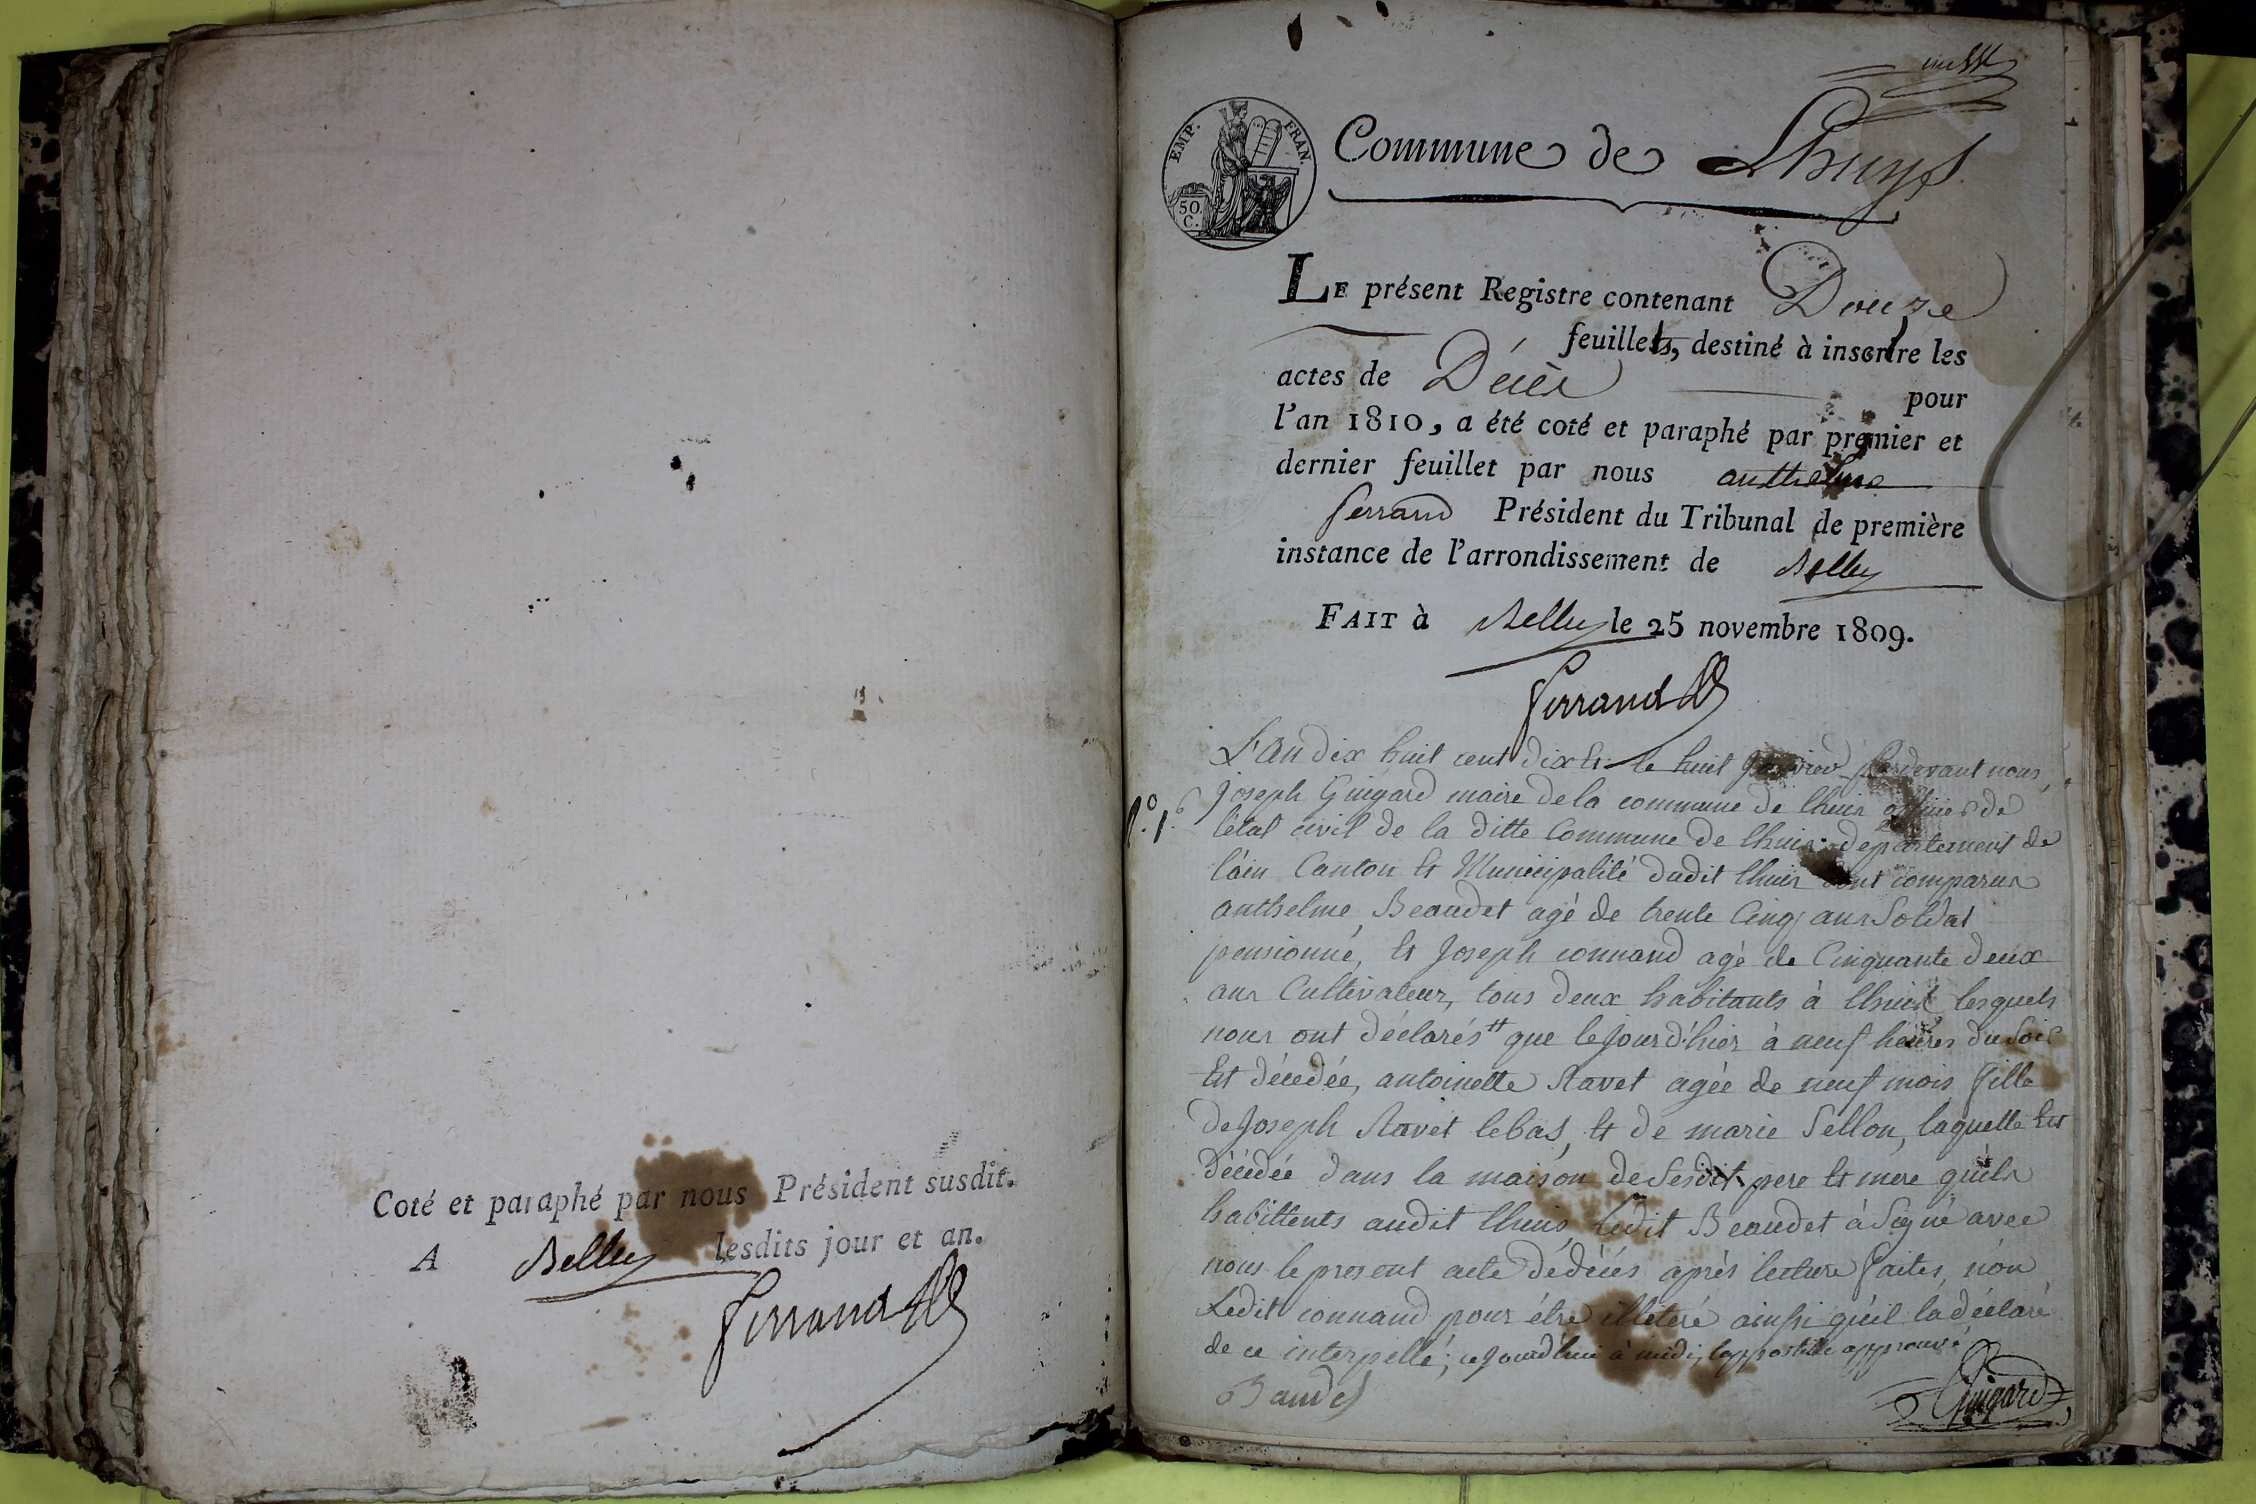 Coté et paraphé par nous Président susdit.
A Belley lesdits jour et an.
Ferrand
EMP. FRAN.
50
C.
Commune de Lhuys
LE présent Registre contenant Douze
feuillets, destiné à inscrire les
actes de Décès pour
l'an 1810, a été coté et paraphé par premier et
dernier feuillet par nous anthelme
ferrand Président du Tribunal de première
instance de l'arrondissement de Belley
FAIT à Belley le 25 novembre 1809.
Ferrand
N.° 1.
L'an dix huit cent dix Et le huit janvier pardevant nous,
joseph Guigard maire de la commune de lhuis officier de
l'état civil de la ditte Commune de lhuis departement de
l'ain Canton Et Municipalité dudit lhuis sont comparus
anthelme Beaudet agé de trente Cinq ans Soldat
pensionné, Et joseph connand agé de Cinquante deux
ans Cultivateur, tous deux habitants à lhuis, lesquels
nous ont déclarés que le jour d'hier à neuf heures du Soir
Est décédée, antoinette Ravet agée de neuf mois fille
de Joseph Ravet lebas, Et de marie Sellon, laquelle Est
décédée dans la maison de Sesdit pere Et mere qu'ils
habittents audit lhuis, Ledit Beaudet à Signé avec
nous le present acte dédécés après lecture faites, non
Ledit connand pour être illiteré ainsi qu'il la déclaré
de ce interpellé; ce jourd'hui à midi, lappostille approuvé
Baudet
Guigard